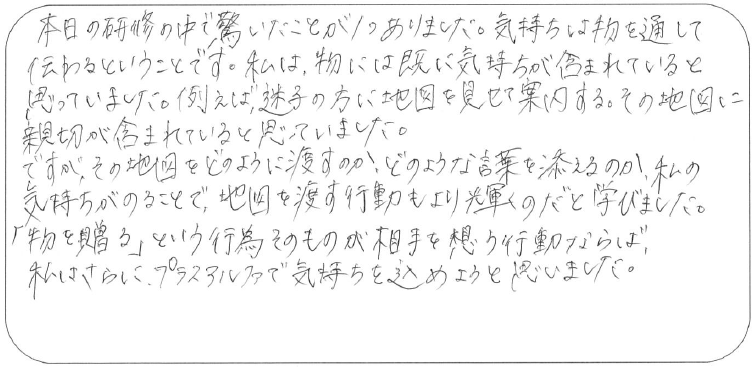 本日の研修の中で驚いたことが1つありました。気持ちは物を通して
伝わるということです。私は、物には既に気持ちが含まれていると
思っていました。例えば、迷子の方に地図を見せて案内する。その地図に
親切が含まれていると思っていました。
ですが、その地図をどのように渡すのか、どのような言葉を添えるのか、私の
気持ちがのることで、地図を渡す行動もより光輝くのだと学びました。
「物を贈る」という行為そのものが相手を想う行動ならば、
私はさらに、プラスアルファで気持ちを込めようと思いました。